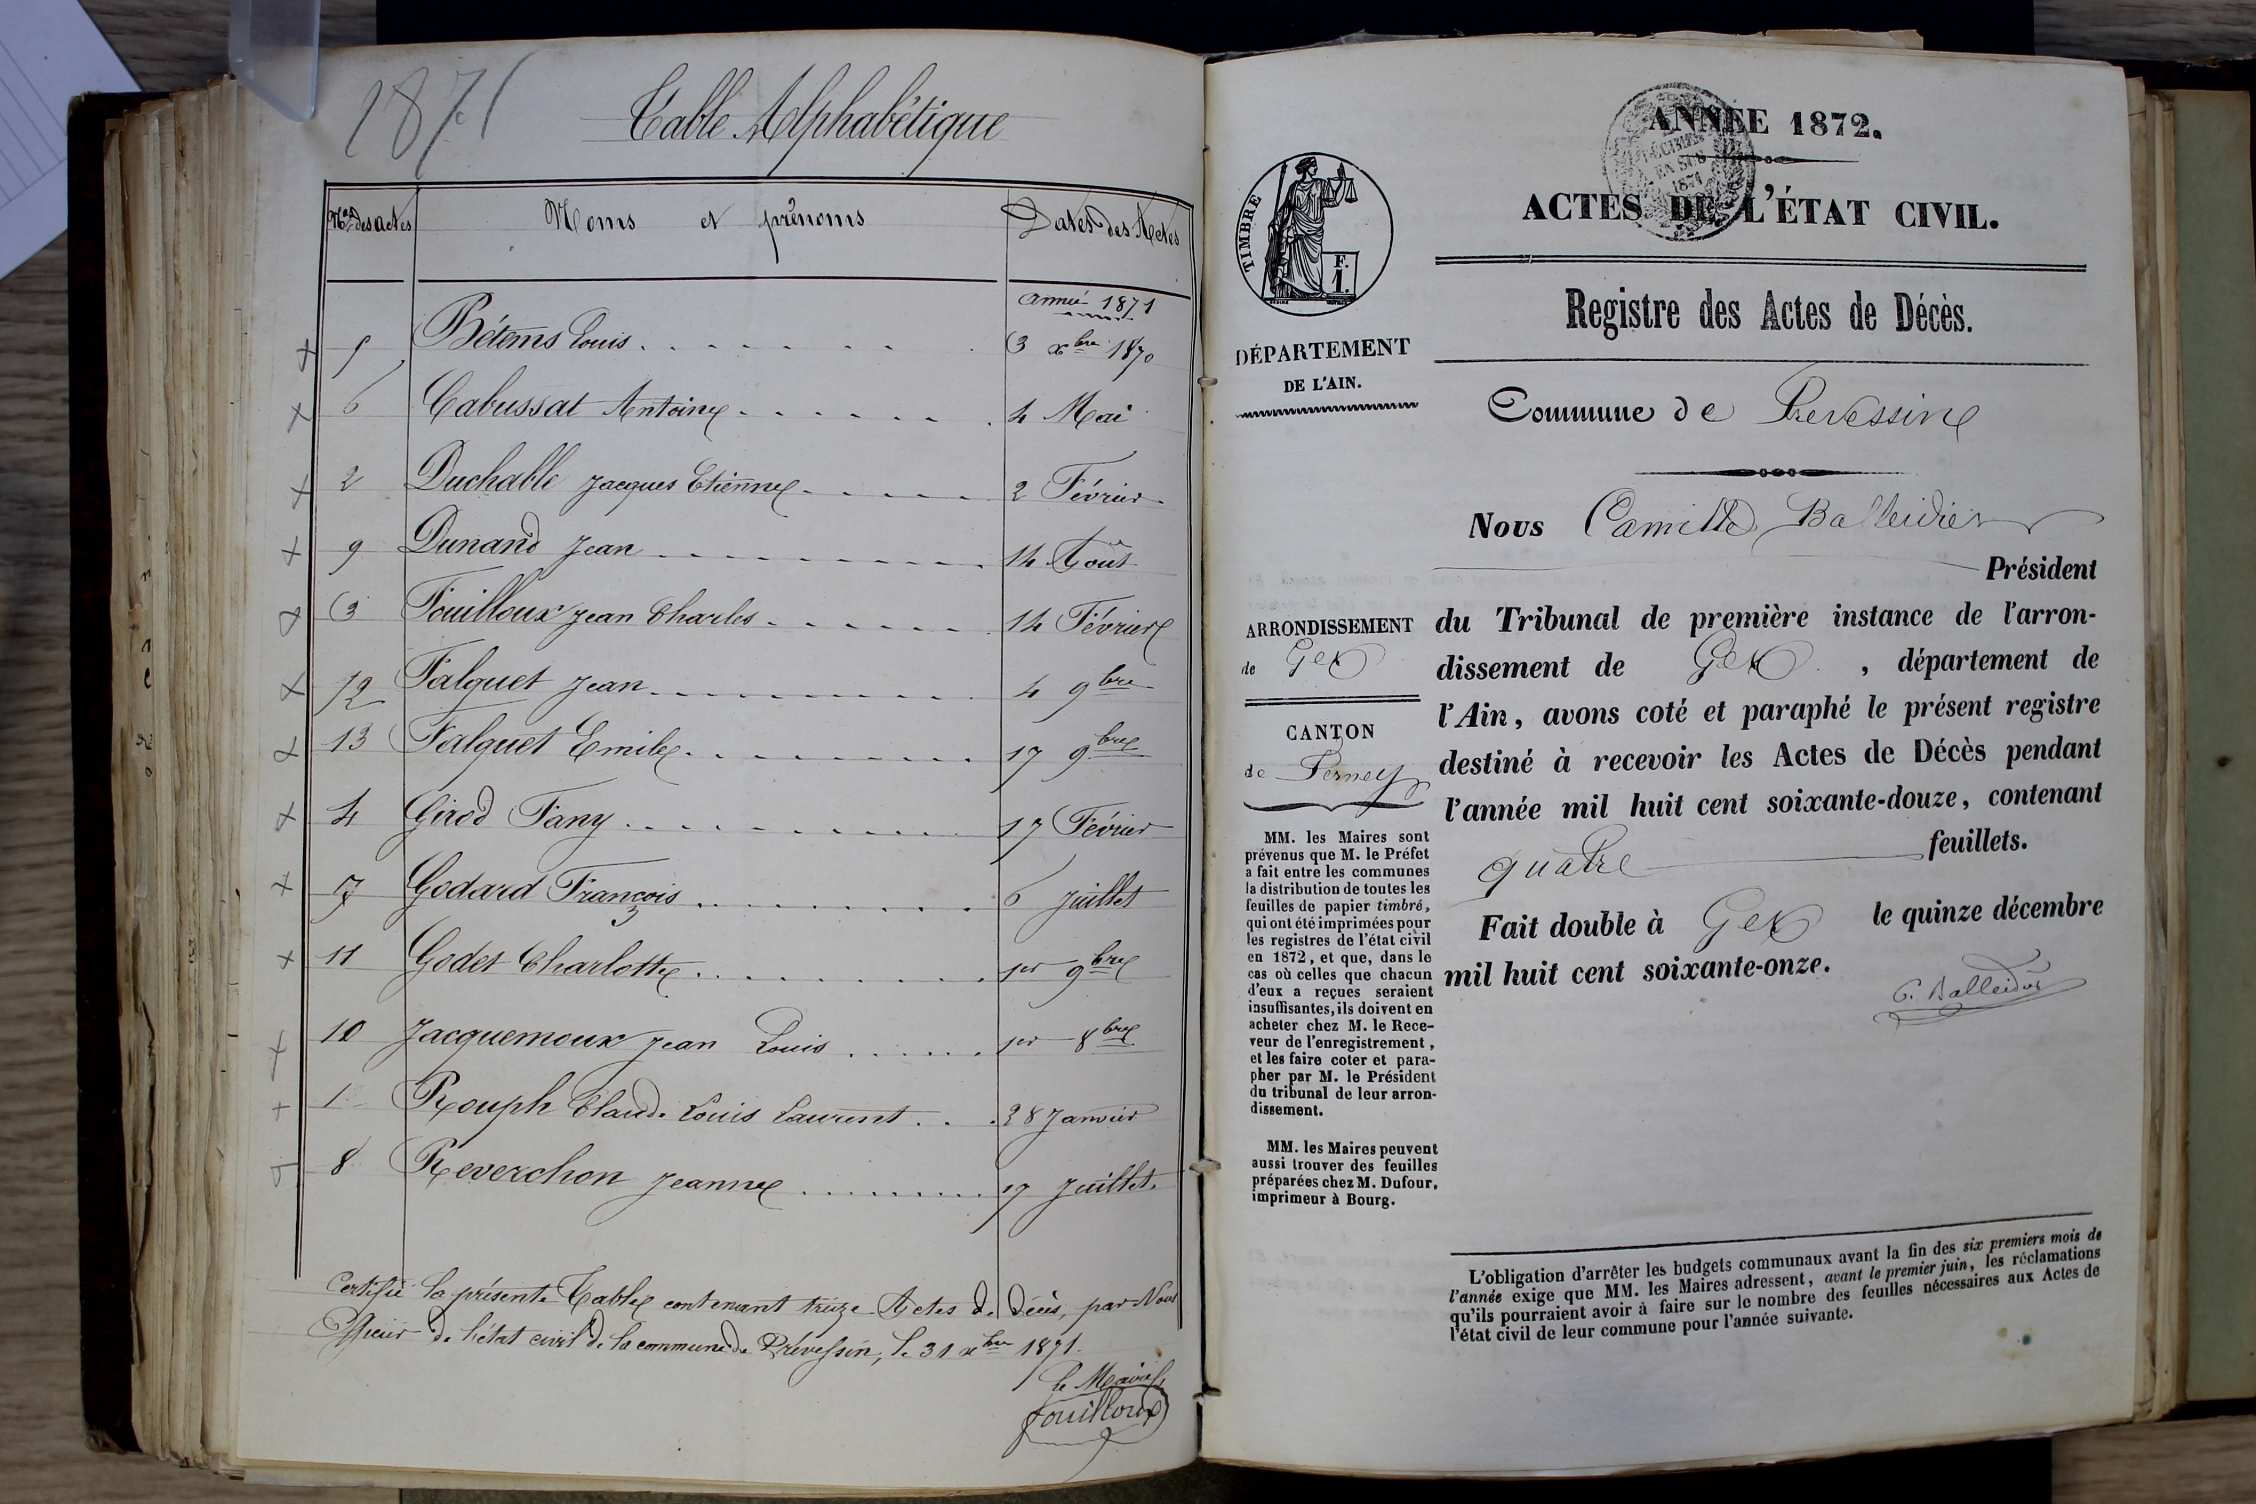 1871
Table Alphabétique
Nos des actes Noms et prénoms Dates des Actes
année 1871
5 Bétems Louis 3 xbre 1870
6 Cabussat Antoine 4 Mai
2 Duchable Jacques Etienne 2 Février
9 Dunand Jean 14 Août
3 Fouilloux Jean Charles 14 Février
12 Falquet Jean 4 9bre
13 Falquet Emile 17 9bre
4 Girod Fany 17 Février
7 Godard François 6 Juillet
11 Godet Charlotte 1er 9bre
10 Jacquemoux Jean Louis 1er 8bre
1 Rouph Claude Louis Laurent 28 Janvier
8 Reverchon Jeanne 17 Juillet
Certifié la présente Table contenant treize Actes de Décès, par Nous
Officier de l'état civil de la commune de Prévessin, le 31 xbre 1871.
Le Maire,
Fouilloux
ANNÉE 1872.
EN SUS
1871
ACTES DE L'ÉTAT CIVIL.
TIMBRE
F.
1.
Registre des Actes de Décès.
DÉPARTEMENT
DE L'AIN.
Commune de Prevessin
Nous Camille Balleidier
Président
ARRONDISSEMENT
de Gex
CANTON
de Ferney
du Tribunal de première instance de l'arron-
dissement de Gex, département de
l'Ain, avons coté et paraphé le présent registre
destiné à recevoir les Actes de Décès pendant
l'année mil huit cent soixante-douze, contenant
quatre feuillets.
Fait double à Gex le quinze décembre
mil huit cent soixante-onze.
C. Balleidier
MM. les Maires sont
prévenus que M. le Préfet
a fait entre les communes
la distribution de toutes les
feuilles de papier timbré,
qui ont été imprimées pour
les registres de l'état civil
en 1872, et que, dans le
cas où celles que chacun
d'eux a reçues seraient
insuffisantes, ils doivent en
acheter chez M. le Rece-
veur de l'enregistrement,
et les faire coter et para-
pher par M. le Président
du tribunal de leur arron-
dissement.
MM. les Maires peuvent
aussi trouver des feuilles
préparées chez M. Dufour,
imprimeur à Bourg.
L'obligation d'arrêter les budgets communaux avant la fin des six premiers mois de
l'année exige que MM. les Maires adressent, avant le premier juin, les réclamations
qu'ils pourraient avoir à faire sur le nombre des feuilles nécessaires aux Actes de
l'état civil de leur commune pour l'année suivante.